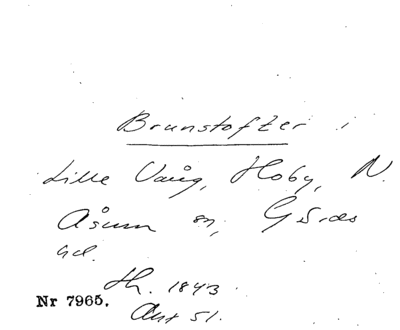 Brunstofter i
Lille Vång, Hoby, N.
Åsum sn, Gärds
hd.
Th. 1843
Akt 51.
Nr 7965.